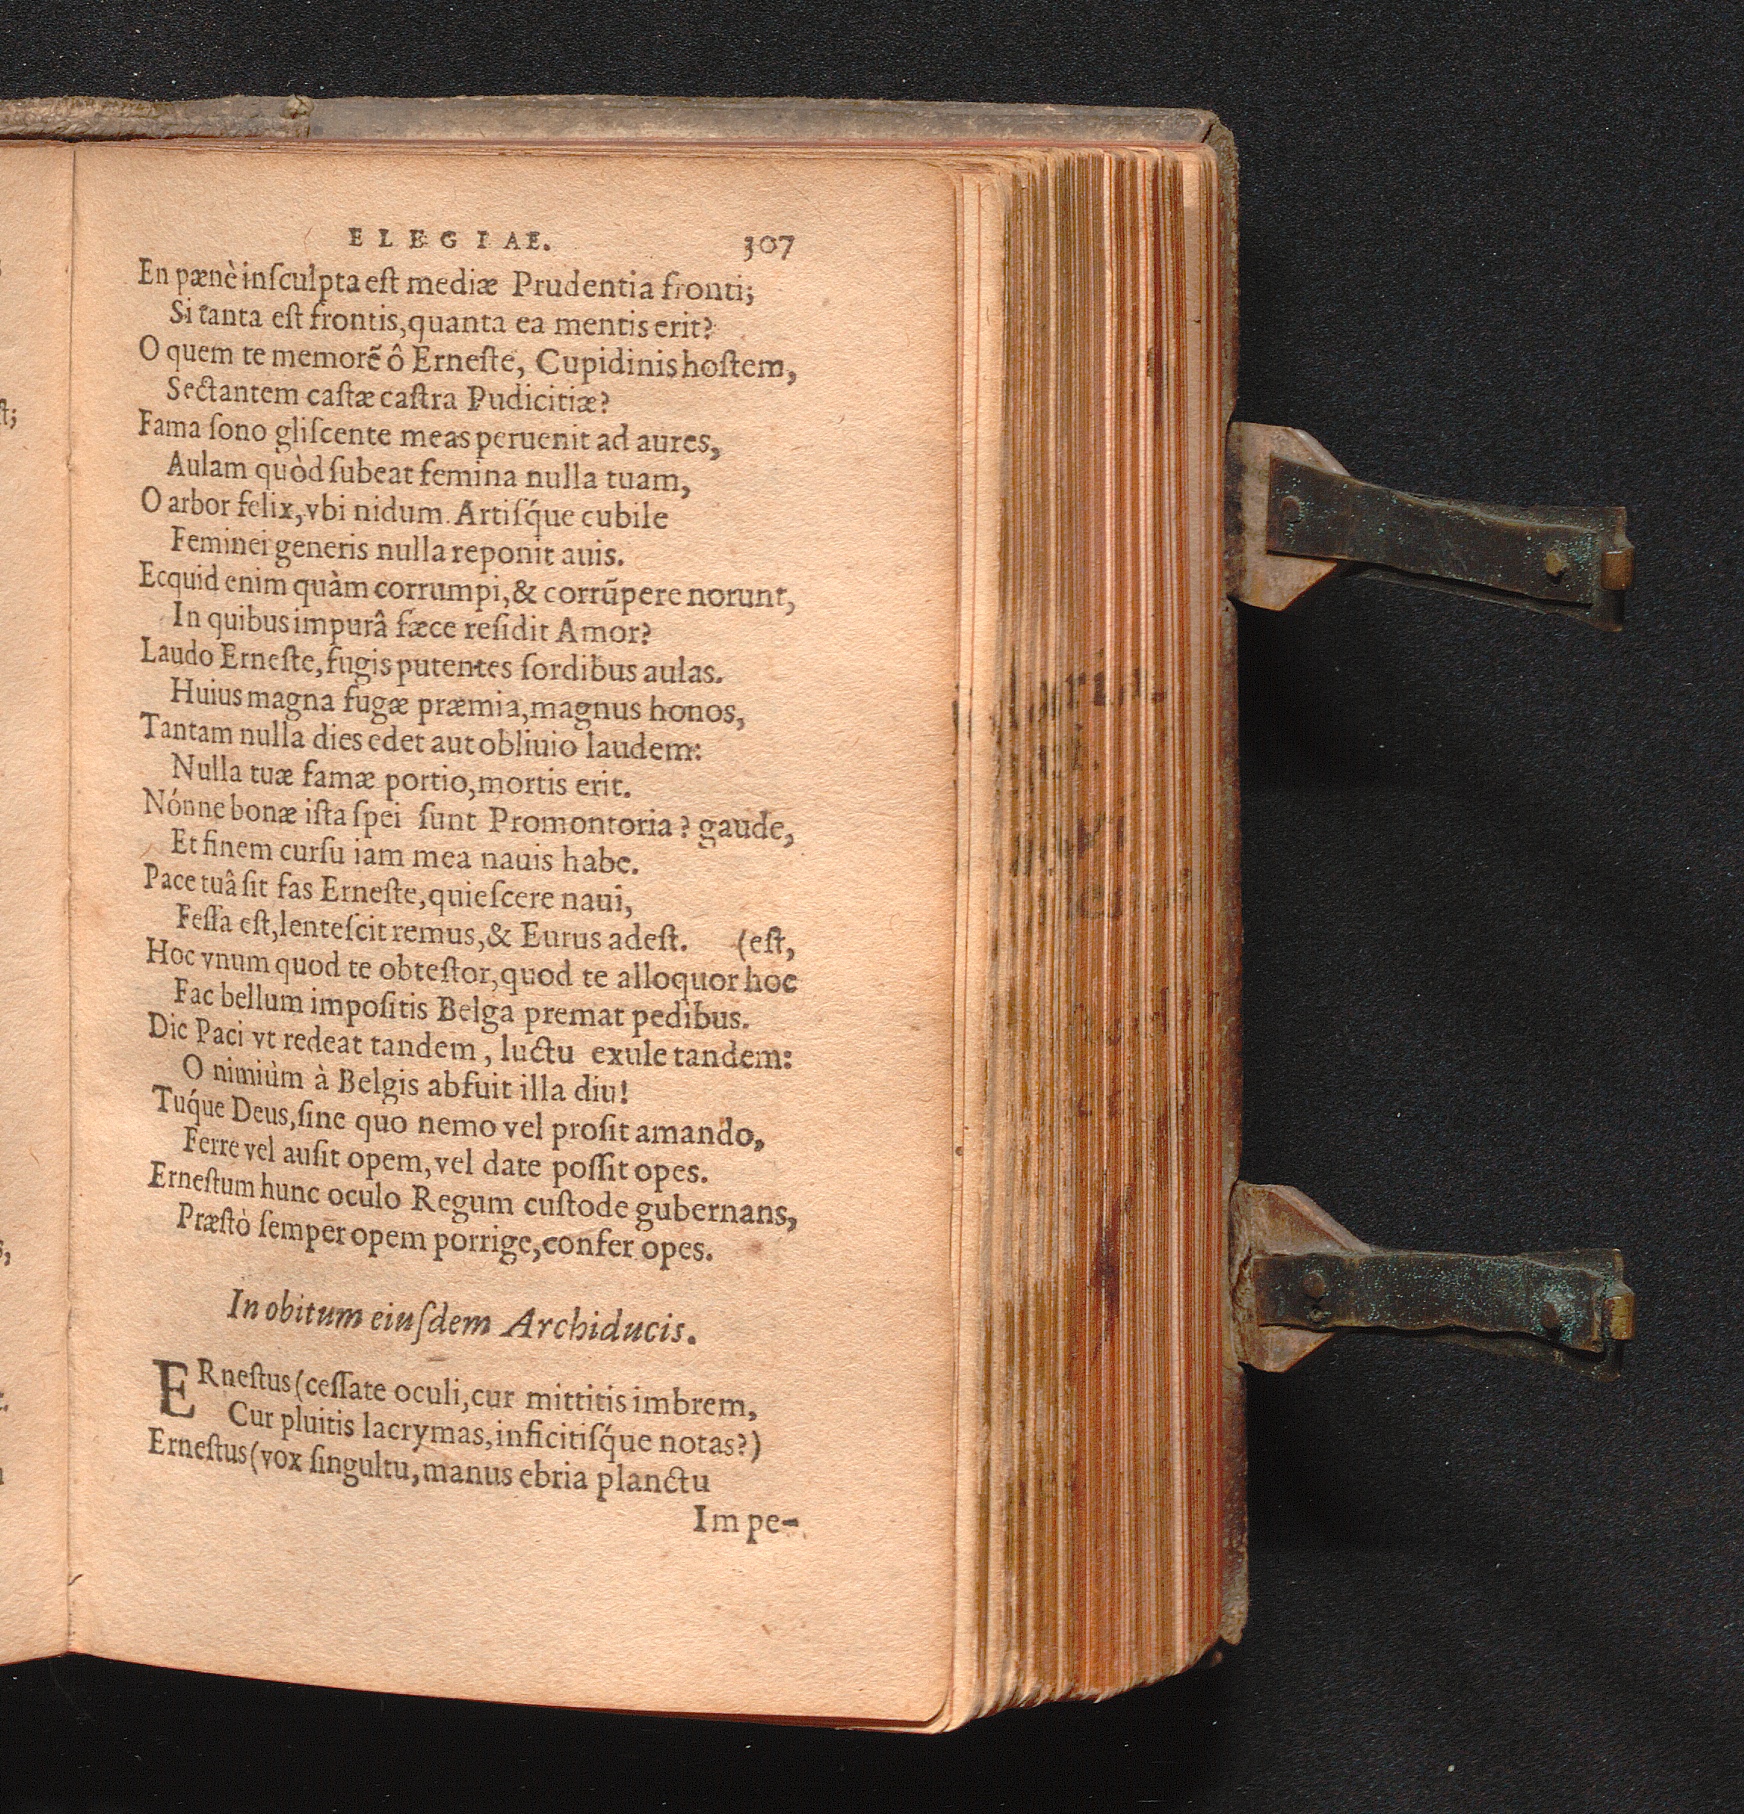 ELEGIAE. 307
En pænè inſculpta eſt mediæ Prudentia fronti;
Si tanta eſt frontis, quanta ea mentis erit?
O quem te memorẽ ô Erneſte, Cupidinis hoſtem,
Sectantem caſtæ caſtra Pudicitiæ?
Fama ſono gliſcente meas peruenit ad aures,
Aulam quòd ſubeat femina nulla tuam,
O arbor felix, vbi nidum Artiſq́ue cubile
Feminei generis nulla reponit auis.
Ecquid enim quàm corrumpi, & corrũpere norunt,
In quibus impurâ fæce reſidit Amor?
Laudo Erneſte, fugis putentes ſordibus aulas.
Huius magna fugæ præmia, magnus honos,
Tantam nulla dies edet aut obliuio laudem:
Nulla tuæ famæ portio, mortis erit.
Nónne bonæ iſta ſpei ſunt Promontoria? gaude,
Et finem curſu iam mea nauis habe.
Pace tuâ ſit fas Erneſte, quieſcere naui,
Feſſa eſt, lenteſcit remus, & Eurus adeſt. (eſt,
Hoc vnum quod te obteſtor, quod te alloquor hoc
Fac bellum impoſitis Belga premat pedibus.
Dic Paci vt redeat tandem, luctu exule tandem:
O nimiùm à Belgis abfuit illa diu!
Tuq́ue Deus, ſine quo nemo vel proſit amando,
Ferre vel auſit opem, vel date poſſit opes.
Erneſtum hunc oculo Regum cuſtode gubernans,
Præſtò ſemper opem porrige, confer opes.
In obitum eiuſdem Archiducis.
ERneſtus (ceſſate oculi, cur mittitis imbrem,
Cur pluitis lacrymas, inficitiſq́ue notas?)
Erneſtus (vox ſingultu, manus ebria planctu
Impe-